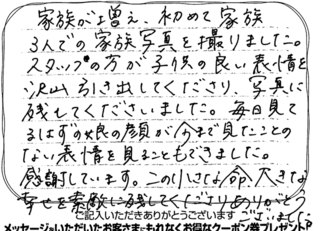 家族が増え、初めて家族
3人での家族写真を撮りました。
スタッフの方が子供の良い表情を
沢山引き出してくださり、写真に
残してくださいました。毎日見て
るはずの娘の顔が今まで見たことの
ない表情を見ることもできました。
感謝しています。この小さな命、大きな
幸せを素敵に残してくださりありがとう
ございました
ご記入いただきありがとうございます
メッセージをいただいたお客さまにもれなくお得なクーポン券プレゼント